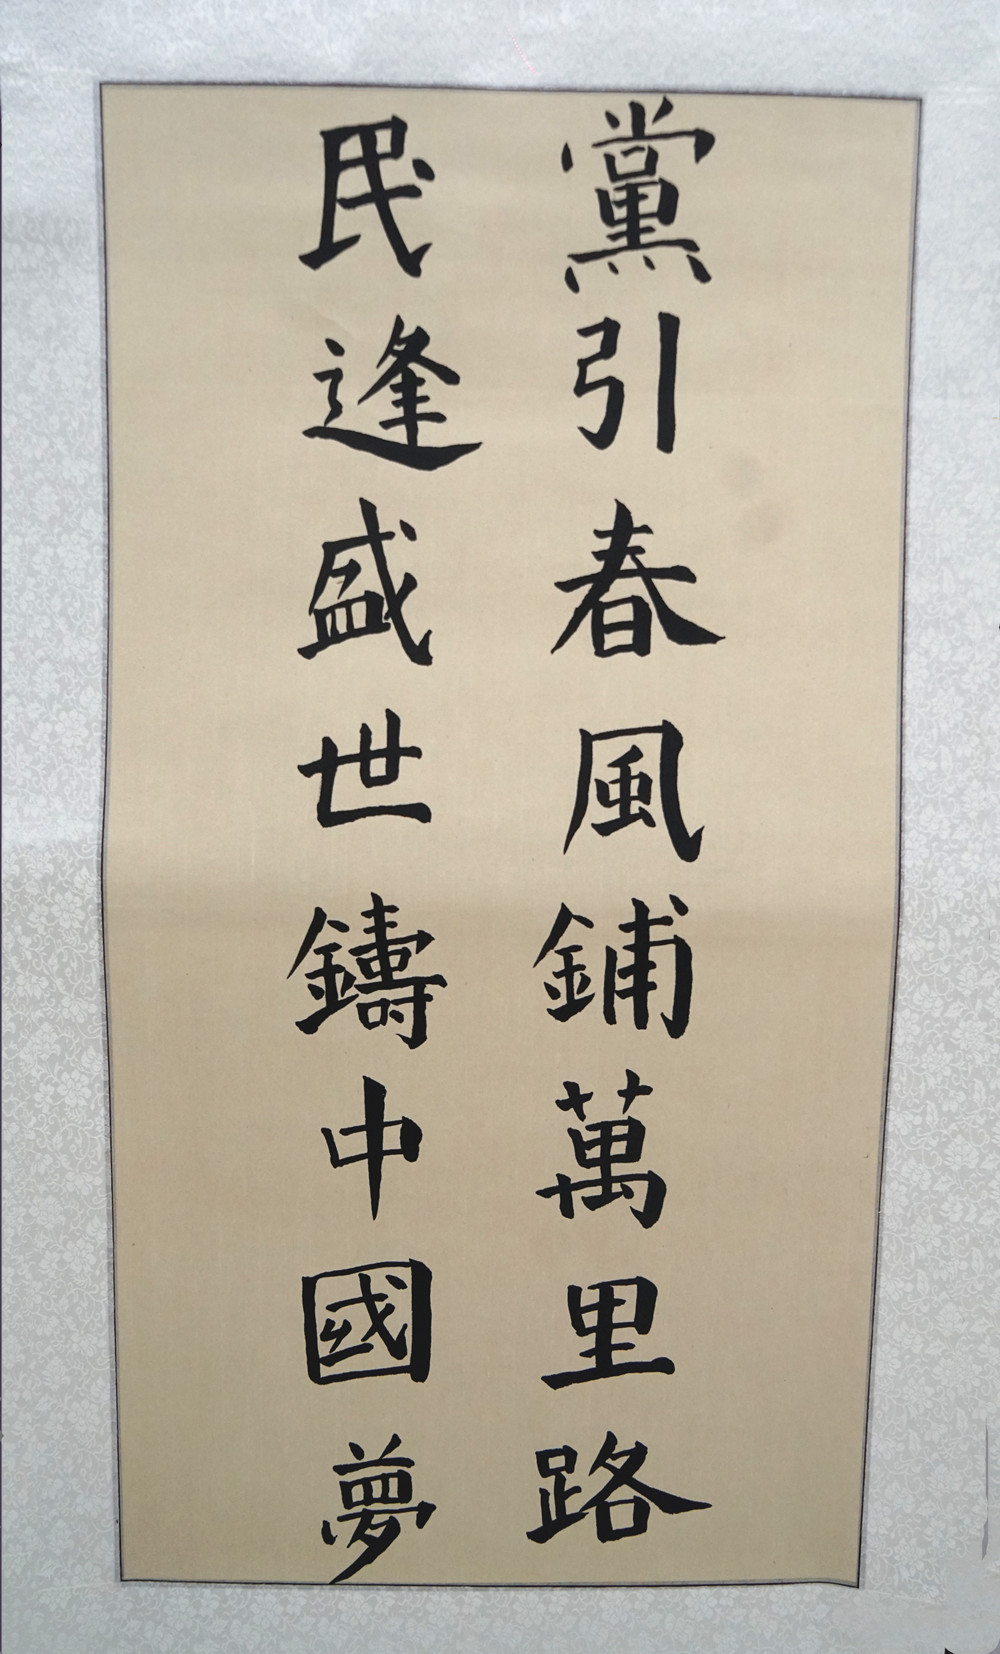 黨引春風鋪萬里路
民逢盛世鑄中國夢